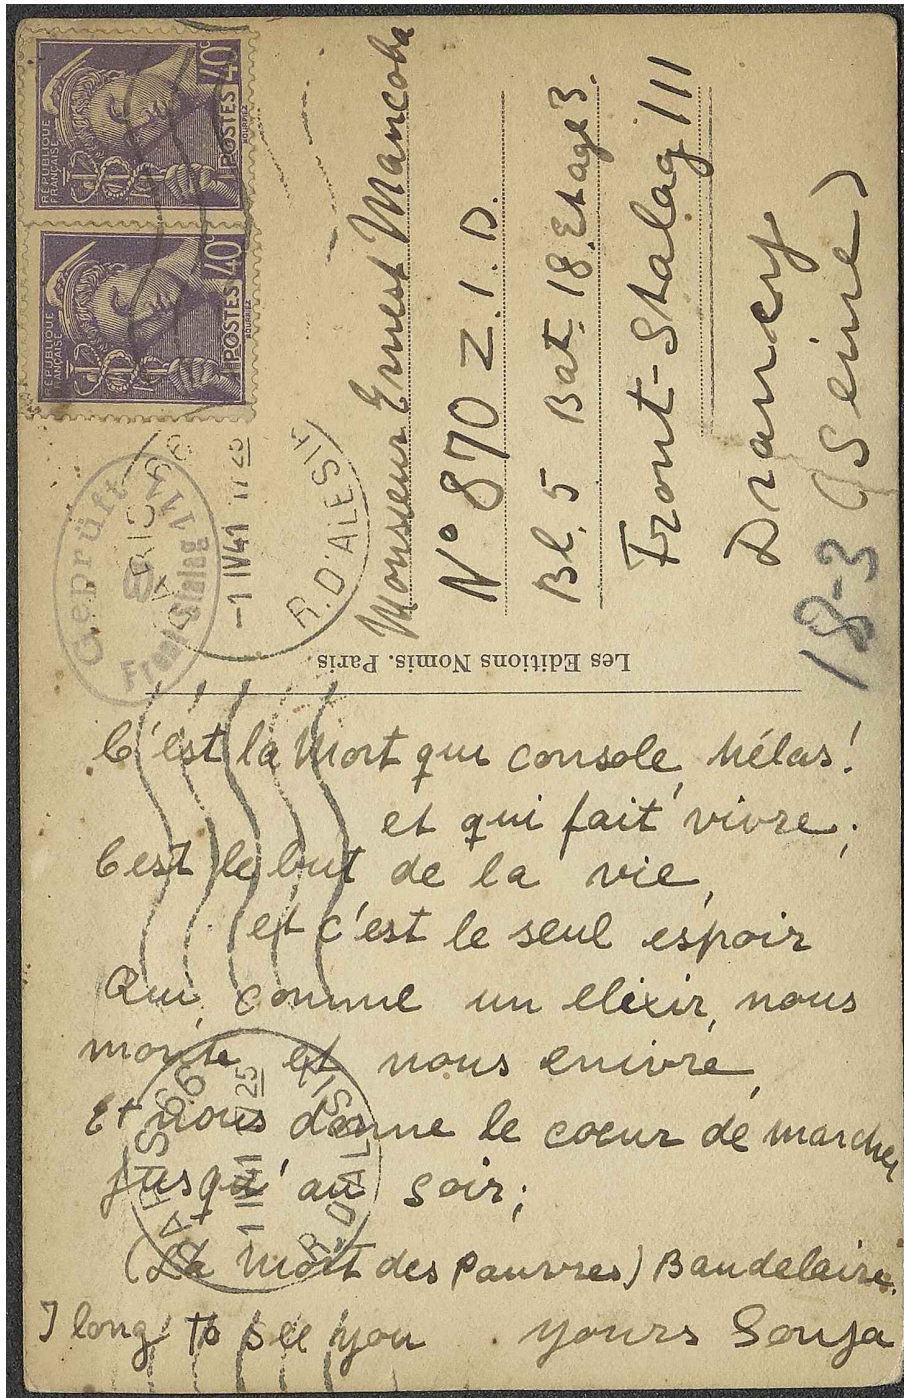 RÉPUBLIQUE FRANÇAISE
POSTES 40c
RÉPUBLIQUE FRANÇAISE
POSTES 40c
Geprüft
8
Front-Stalag 111
PARIS 66
-1 IV41 17 25
R. D'ALESIA
Monsieur Ernest Mancoba
N° 870 Z. I. D.
Bl. 5 Bat. 18. Etage 3.
Front-Stalag 111
Drancy
(Seine)
18-3
Les Editions Nomis. Paris.
C'est la Mort qui console, hélas!
et qui fait vivre;
C'est le but de la vie,
et c'est le seul espoir
Qui, comme un elixir, nous
monte et nous enivre,
Et nous donne le coeur de marcher
jusqu'au soir;
(La Mort des Pauvres) Baudelaire.
I long to see you yours Sonja
PARIS 66
-1 IV41 17 25
R. D'ALESIA